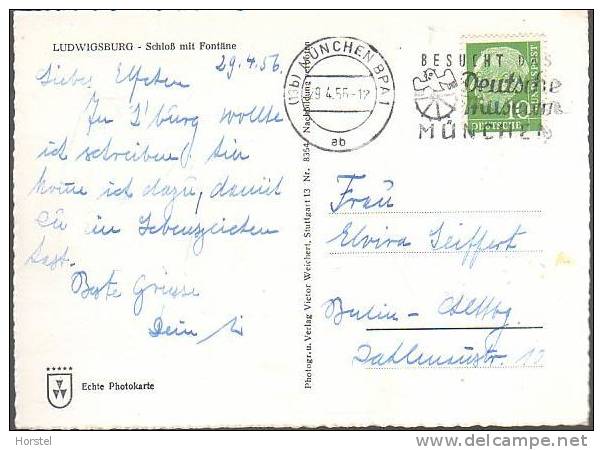 LUDWIGSBURG - Schloß mit Fontäne
29.4.56.
Liebes Elfchen
In L'burg wollte
ich schreiben, hier
komme ich dazu, damit
Du ein Lebenszeichen
hast.
Beste Grüsse
Dein
Echte Photokarte
Photogr. u. Verlag Victor Weichert, Stuttgart 13 Nr. 8354 Nachbildung verboten
(13b) MÜNCHEN BPA 1
29.4.56-12
ab
BESUCHT DAS
Deutsche
Museum
MÜNCHEN
DEUTSCHE BUNDESPOST
10
Frau
Elvira Seiffert
Berlin-
12
Horstel
http://www.delcampe.net